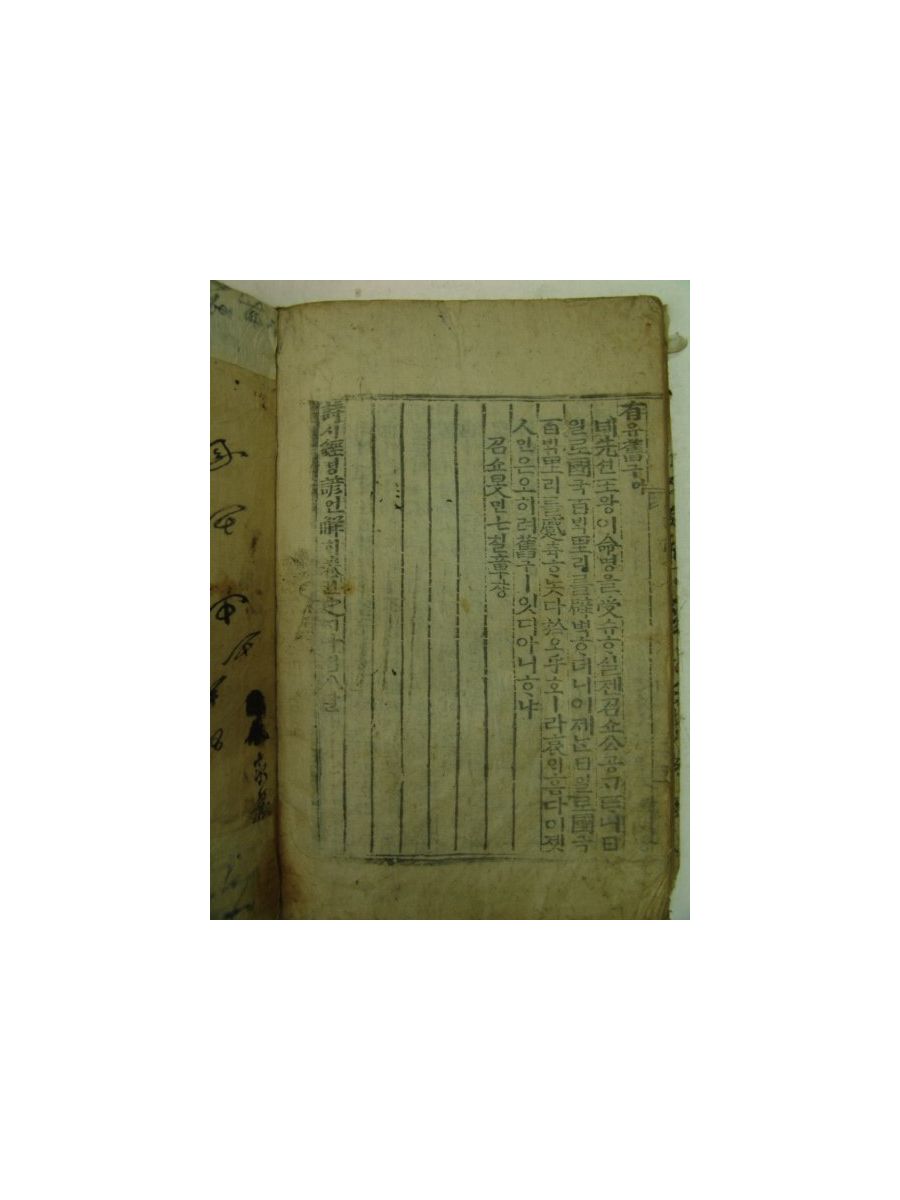 有유舊구아
녜先션王왕이命명을受슈ᄒᆞ실젠召쇼公공ᄀᆞᄐᆞ니日
일로國국百ᄇᆡᆨ里리를辟벽ᄒᆞ더니이제ᄂᆞᆫ日일로國국
百ᄇᆡᆨ里리를蹙츅ᄒᆞ놋다於오乎호ㅣ라哀ᄋᆡ흡다이젯
人인은오히려舊구ㅣ잇디아니ᄒᆞ냐
召쇼旻민七칠章쟝
詩시經경諺언解ᄒᆡ卷권之지十십八팔